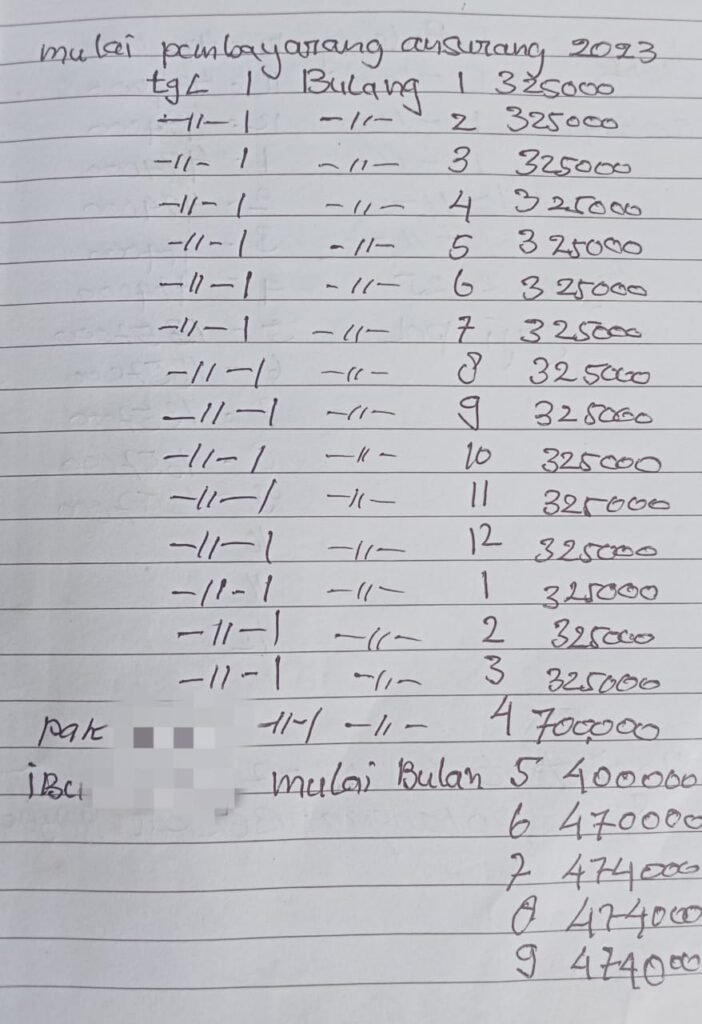 mulai pembayarang ansurang 2023
tgL 1 Bulang 1 325000
-11- 1 -11- 2 325000
-11- 1 -11- 3 325000
-11- 1 -11- 4 325000
-11- 1 -11- 5 325000
-11- 1 -11- 6 325000
-11- 1 -11- 7 325000
-11- 1 -11- 8 325000
-11- 1 -11- 9 325000
-11- 1 -11- 10 325000
-11- 1 -11- 11 325000
-11- 1 -11- 12 325000
-11- 1 -11- 1 325000
-11- 1 -11- 2 325000
-11- 1 -11- 3 325000
pak -11- 1 -11- 4 700,000
iBu mulai Bulan 5 400000
6 470000
7 474000
8 474000
9 474000